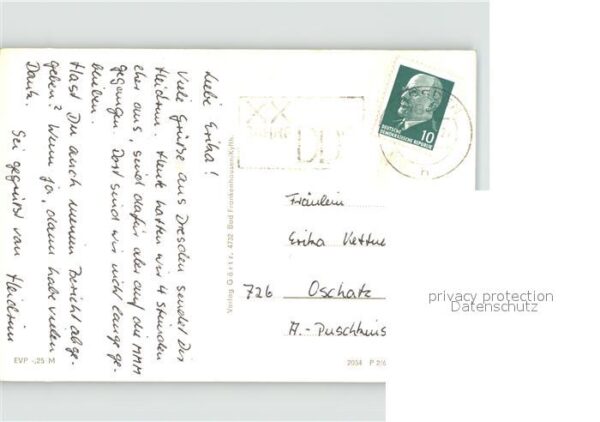 Liebe Erika!
Viele Grüße aus Dresden sendet Dir
Heidrun. Heute hatten wir 4 Stunden
eher aus, sind dafür aber auf die MMM
gegangen. Dort sind wir nicht lange ge-
blieben.
Hast Du auch meinen Bericht abge-
geben? Wenn ja, dann habe vielen
Dank.
Sei gegrüßt von Heidrun
Verlag Görtz, 4732 Bad Frankenhausen/Kyffh.
XX
JAHRE
DDR
DEUTSCHE
DEMOKRATISCHE REPUBLIK
10
Fräulein
Erika
726 Oschatz
A.-Puschkins
EVP -,25 M
2034 P 2/6
privacy protection
Datenschutz